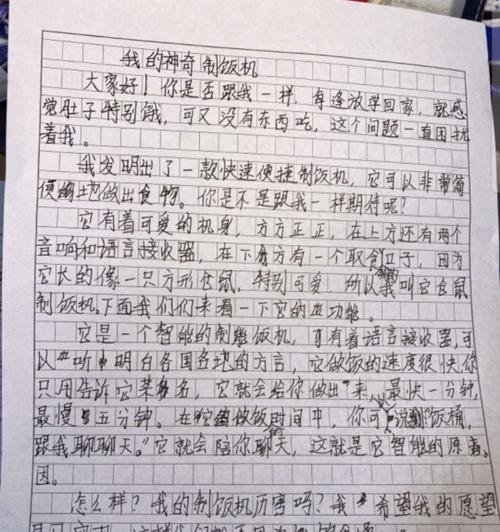 我的神奇制饭机
大家好！你是否跟我一样，每逢放学回家，就感
觉肚子特别饿，可又没有东西吃，这个问题一直困扰
着我。
我发明出了一款快速便捷制饭机，它可以非常简
便地做出食物。你是不是跟我一样期待呢？
它有着可爱的机身，方方正正，在上方还有两个
音响和语言接收器，在下方有一个取食口子，因为
它长的像一只方形仓鼠，特别可爱，所以我叫它仓鼠
制饭机，下面我们们来看一下它的功能。
它是一个智能的制饭机，有着语言接收器，可
以听明白各国各地的方言，它做饭的速度很快你
只用告诉它菜名，它就会给你做出来，最快一分钟，
最慢五分钟。在它做饭时间中，你可说到“饭桶，
跟我聊聊天。”它就会陪你聊天，这就是它智能的原
因。
怎么样？我的制饭机厉害吗？我希望我的愿望